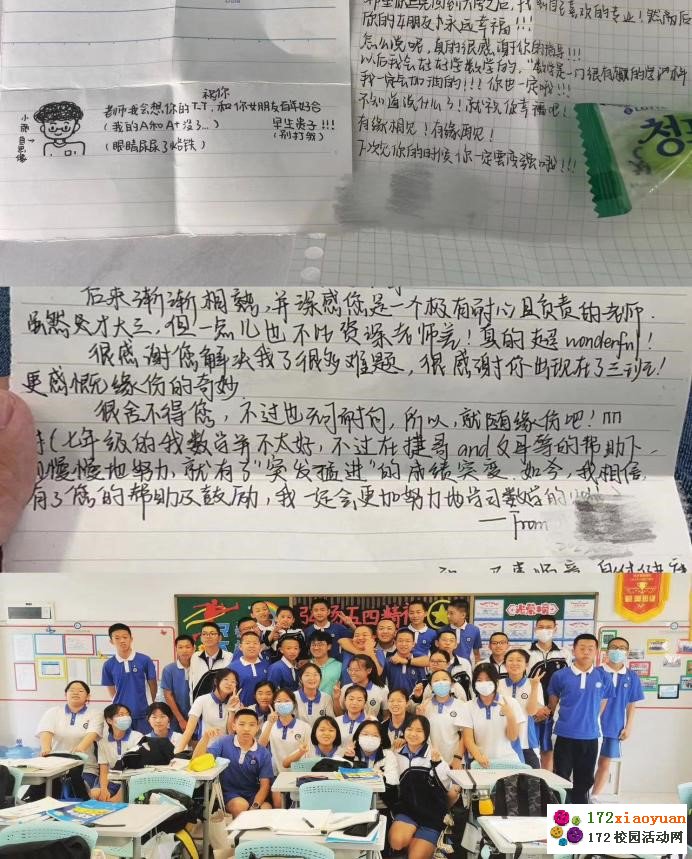 欣的女朋友永远幸福!!!
怎么说呢,真的很感谢你的指导!!!
以后我会好好学数学的,"数学是一门很有趣的学科
我一定会加油的!!!你也一定哦!!!
不知道说什么了,就祝你幸福吧!
有缘相见!有缘再见!
下次见你的时候你一定要变强哦!!!
祝你
老师我会想你的T_T,和你女朋友百年好合
(我的A和A+没了...)
早生贵子!!!
(别打我)
(眼睛尿尿了
小
自画像
청
后来渐渐相熟,并深感您是一个极有耐心且负责的老师.
虽然只才大三,但一点儿也不比资深老师差!真的超wonderful!
很感谢您解决我了很多难题,很感谢你出现在了三班!
更感慨缘份的奇妙
很舍不得您,不过也无可奈何,所以,就随缘份吧!
(七年级的我数学并不太好,不过在捷哥and父母等的帮助下
慢慢地努力,就有了"突发猛进"的成绩突变 如今,我相信,
有了您的帮助及鼓励,我一定会更加努力地学习数学的
—From
弘扬五四精神
光荣榜
172xiaoyuan
172校园活动网